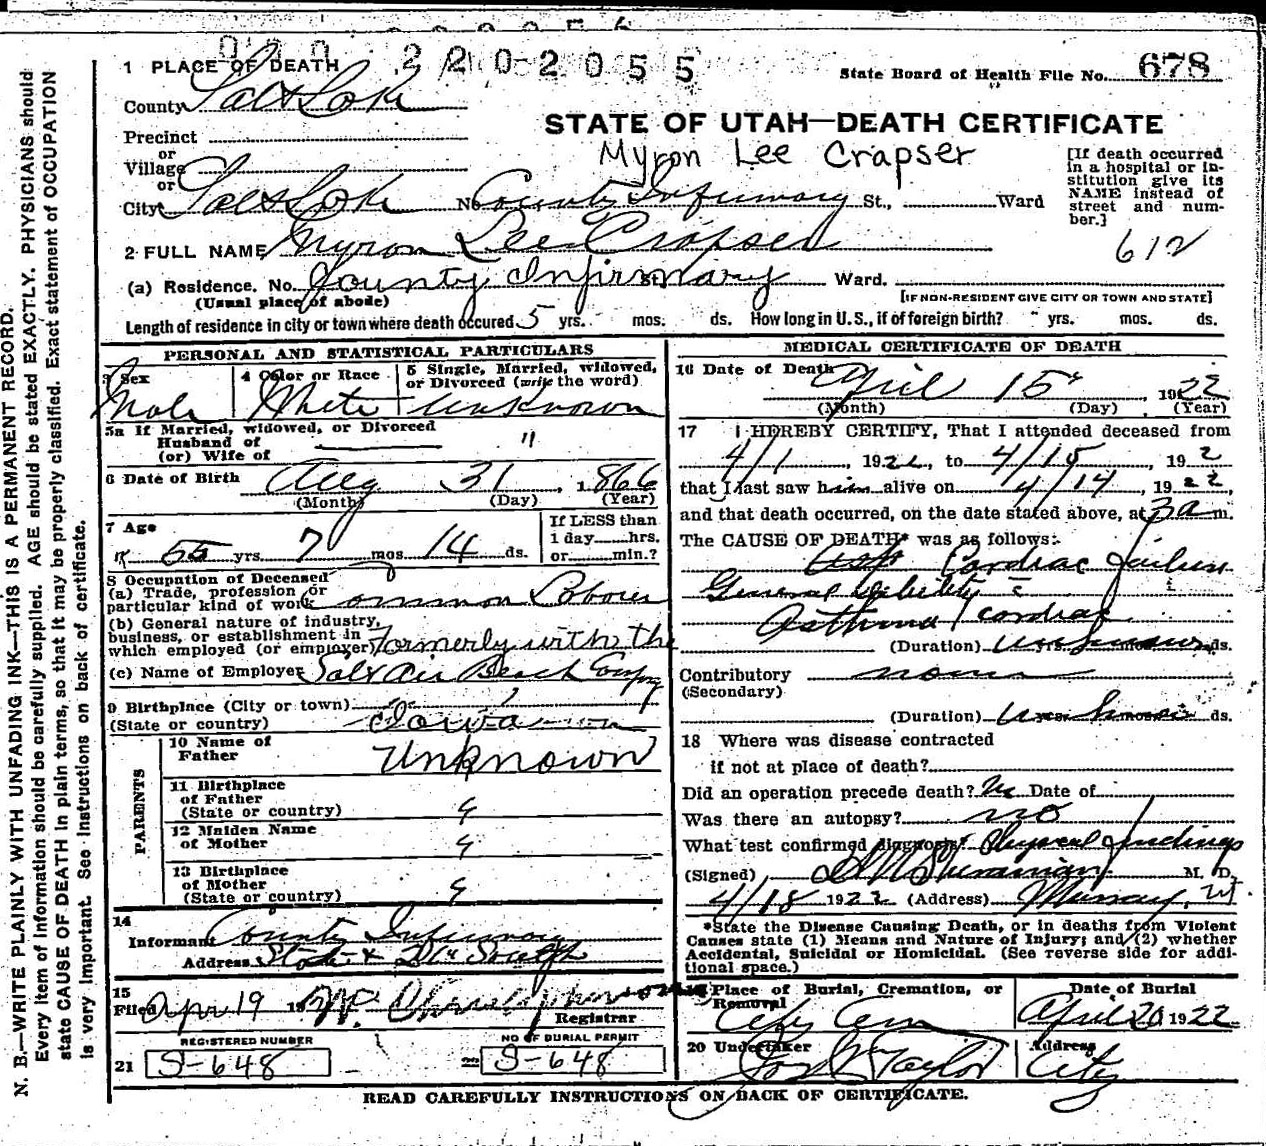 220 2055
1 PLACE OF DEATH
State Board of Health File No. 678
County Salt Lake
STATE OF UTAH—DEATH CERTIFICATE
Precinct
Myron Lee Crapser
or
Village
or
City Salt Lake No County Infirmary St., Ward
[If death occurred
in a hospital or in-
stitution give its
NAME instead of
street and num-
ber.]
612
2 FULL NAME Myron Lee Crapser
(a) Residence. No. County Infirmary St. Ward.
(Usual place of abode)
[IF NON-RESIDENT GIVE CITY OR TOWN AND STATE]
Length of residence in city or town where death occured 5 yrs. mos. ds. How long in U.S., if of foreign birth? yrs. mos. ds.
PERSONAL AND STATISTICAL PARTICULARS
3 Sex
Male
4 Color or Race
White
5 Single, Married, widowed,
or Divorced (write the word)
Unknown
5a If Married, widowed, or Divorced
Husband of "
(or) Wife of
6 Date of Birth Aug 31, 1866
(Month) (Day) (Year)
7 Age
55 yrs. 7 mos 14 ds.
If LESS than
1 day hrs.
or min.?
8 Occupation of Deceased
(a) Trade, profession or
particular kind of work Common Laborer
(b) General nature of industry,
business, or establishment in
which employed (or employer) formerly with the
(c) Name of Employer Salt Air Beach Company
9 Birthplace (City or town)
(State or country) Iowa
PARENTS
10 Name of
Father Unknown
11 Birthplace
of Father
(State or country)
12 Maiden Name
of Mother
13 Birthplace
of Mother
(State or country)
14
Informant County Infirmary
Address State & 21st South
15
Filed Apr 19 19
Registrar
REGISTERED NUMBER
21 S-648
NO OF BURIAL PERMIT
22 S-648
MEDICAL CERTIFICATE OF DEATH
16 Date of Death April 15 1922
(Month) (Day) (Year)
17 I HEREBY CERTIFY, That I attended deceased from
4/1, 1922, to 4/15, 192 2
that I last saw him alive on 4/14, 1922,
and that death occurred, on the date stated above, at 3 a m.
The CAUSE OF DEATH* was as follows:
Cardiac failure
General debility
Asthma / cardiac
(Duration) unknown ds.
Contributory none
(Secondary)
(Duration) unknown ds.
18 Where was disease contracted
if not at place of death?
Did an operation precede death? No Date of
Was there an autopsy? no
What test confirmed diagnosis? Physical findings
(Signed) M. D.
4/18 1922 (Address) Murray, Ut
*State the Disease Causing Death, or in deaths from Violent
Causes state (1) Means and Nature of Injury; and (2) whether
Accidental, Suicidal or Homicidal. (See reverse side for addi-
tional space.)
Place of Burial, Cremation, or
Removal
City Cem
Date of Burial
April 20 1922
20 Undertaker
Jos Wm Taylor
Address
City
READ CAREFULLY INSTRUCTIONS ON BACK OF CERTIFICATE.
N. B.—WRITE PLAINLY WITH UNFADING INK—THIS IS A PERMANENT RECORD.
Every item of information should be carefully supplied. AGE should be stated EXACTLY. PHYSICIANS should
state CAUSE OF DEATH in plain terms, so that it may be properly classified. Exact statement of OCCUPATION
is very important. See instructions on back of certificate.